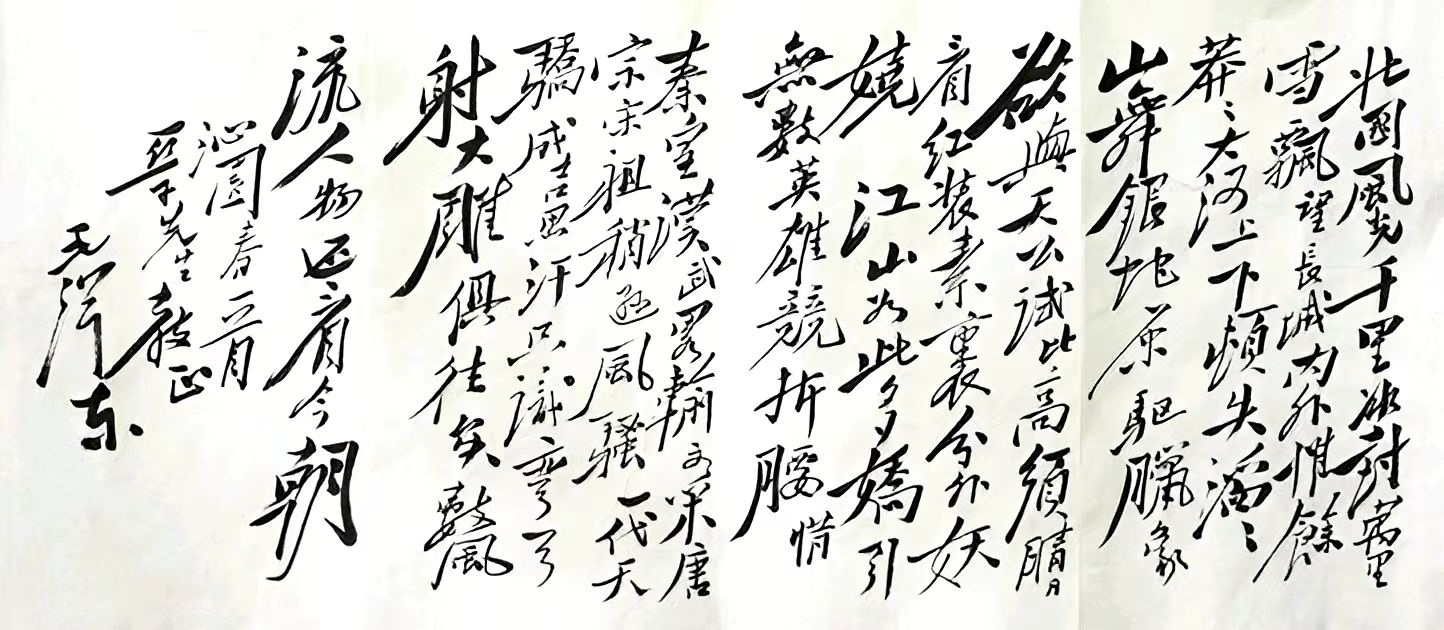 北國風光千里冰封萬里
雪飄望長城内外惟餘
莽〻大河上下頓失滔〻
山舞銀蛇原驅臘象
欲與天公試比高須晴日
看红装素裹分外妖
嬈江山如此多嬌引
無數英雄競折腰惜
秦皇漢武略輸文采唐
宗宋祖稍遜風騷一代天
驕成吉思汗只識彎弓
射大雕俱往矣數風
流人物还看今朝
沁園春一首
亞子先生教正
毛澤东